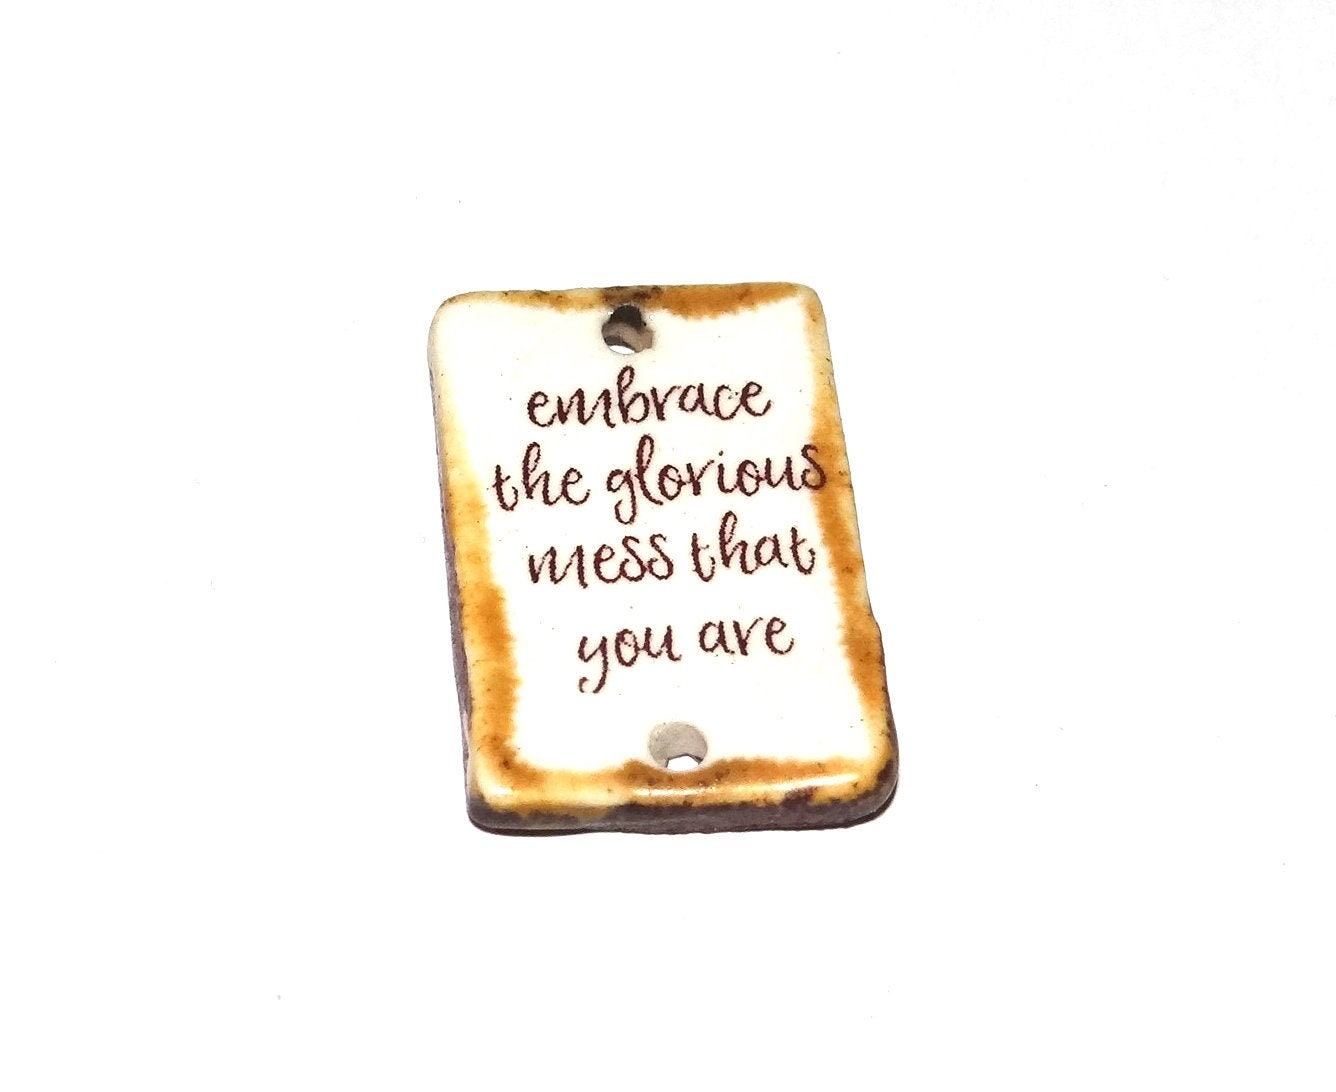 embrace
the glorious
mess that
you are